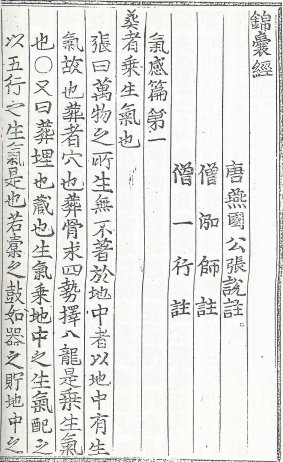 錦囊經
唐燕國公張說註。
僧泓師註
僧一行註
氣感篇第一
葬者乘生氣也
張曰萬物之所生無不著於地中者以地中有生
氣故也葬者穴也葬骨求四勢擇八龍是乗生氣
也○又曰葬埋也蔵也生氣乗地中之生氣配之
以五行之生氣是也若橐之鼓如器之貯地中之